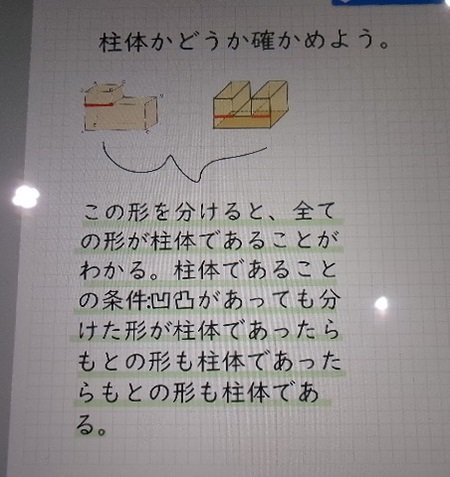 柱体かどうか確かめよう。
この形を分けると、全て
の形が柱体であることが
わかる。柱体であること
の条件:凹凸があっても分
けた形が柱体であったら
もとの形も柱体であった
らもとの形も柱体であ
る。